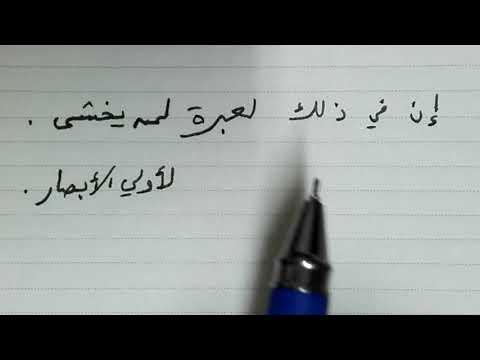 إن في ذلك لعبرة لمن يخشى .
لأولي الأبصار .